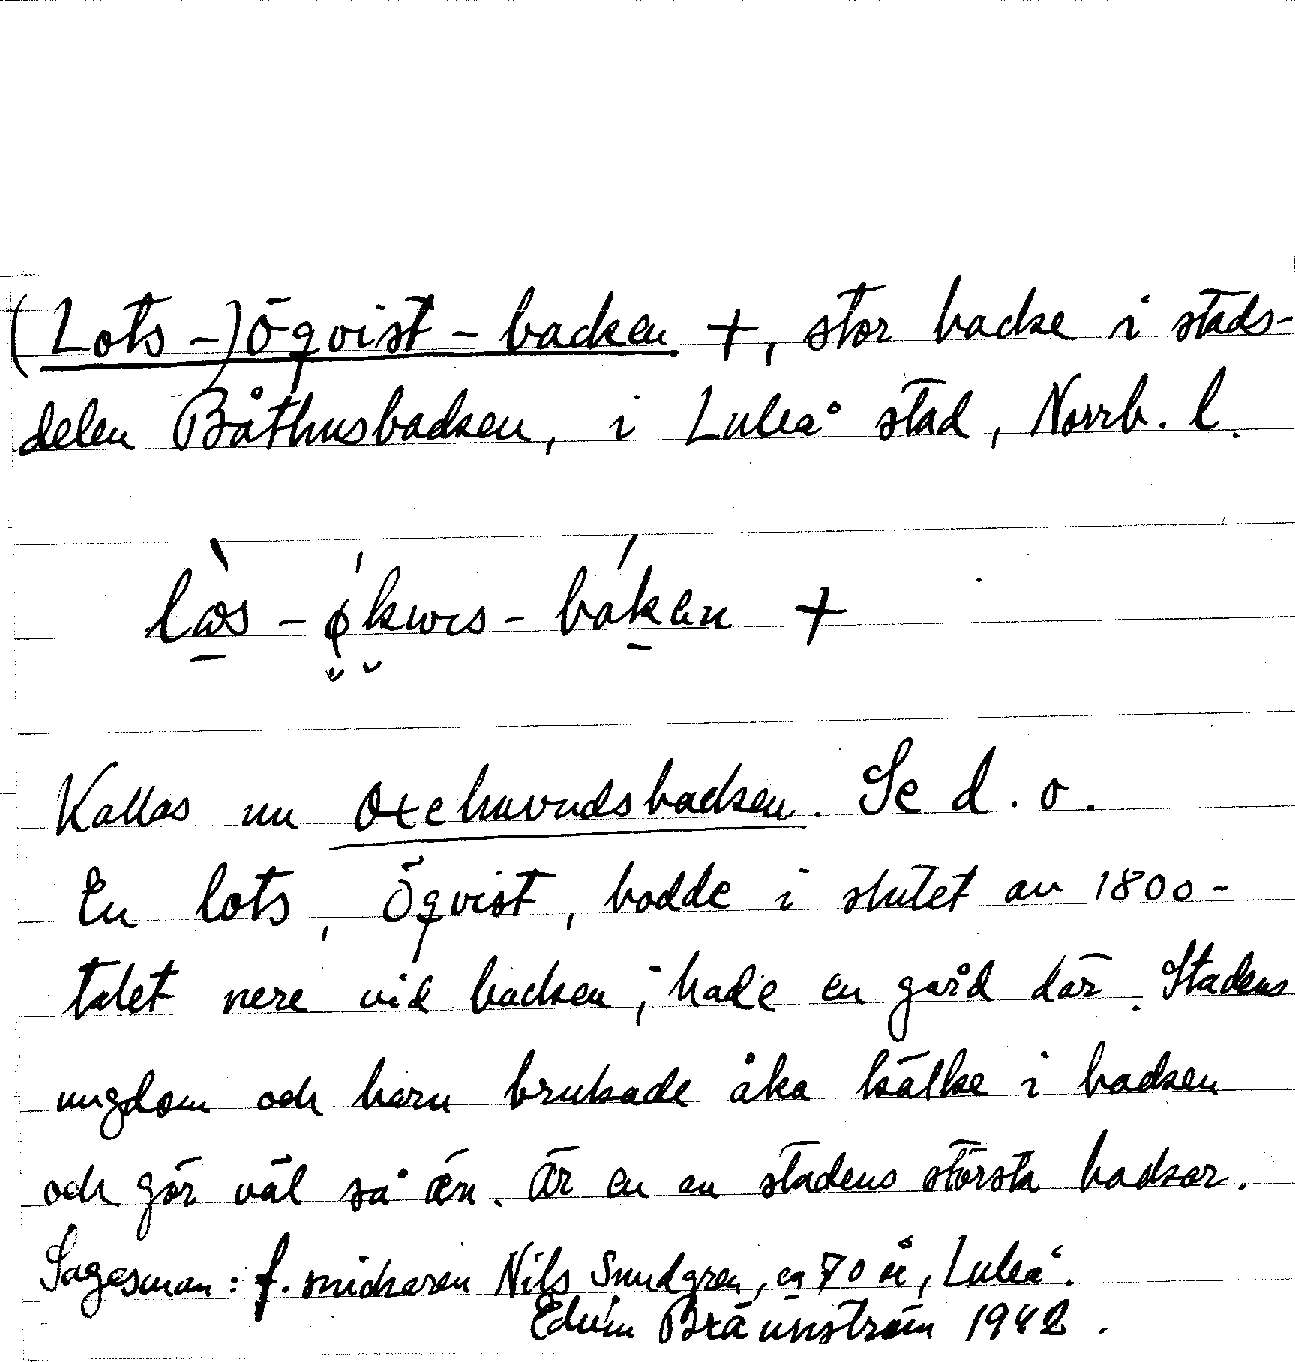 (Lots-)Öqvist-backen +, stor backe i stads-
delen Båthusbacken, i Luleå stad, Norrb. l.
Kallas nu Oxehuvudsbacken. Se d. o.
En lots, Öqvist, bodde i slutet av 1800-
talet nere vid backen, hade en gård där. Stadens
ungdom och barn brukade åka kälke i backen
och gör väl så än. Är en av stadens största backar.
Sagesman: f. snickaren Nils Sundgren, ca 70 år, Luleå.
Edvin Brännström 1942.